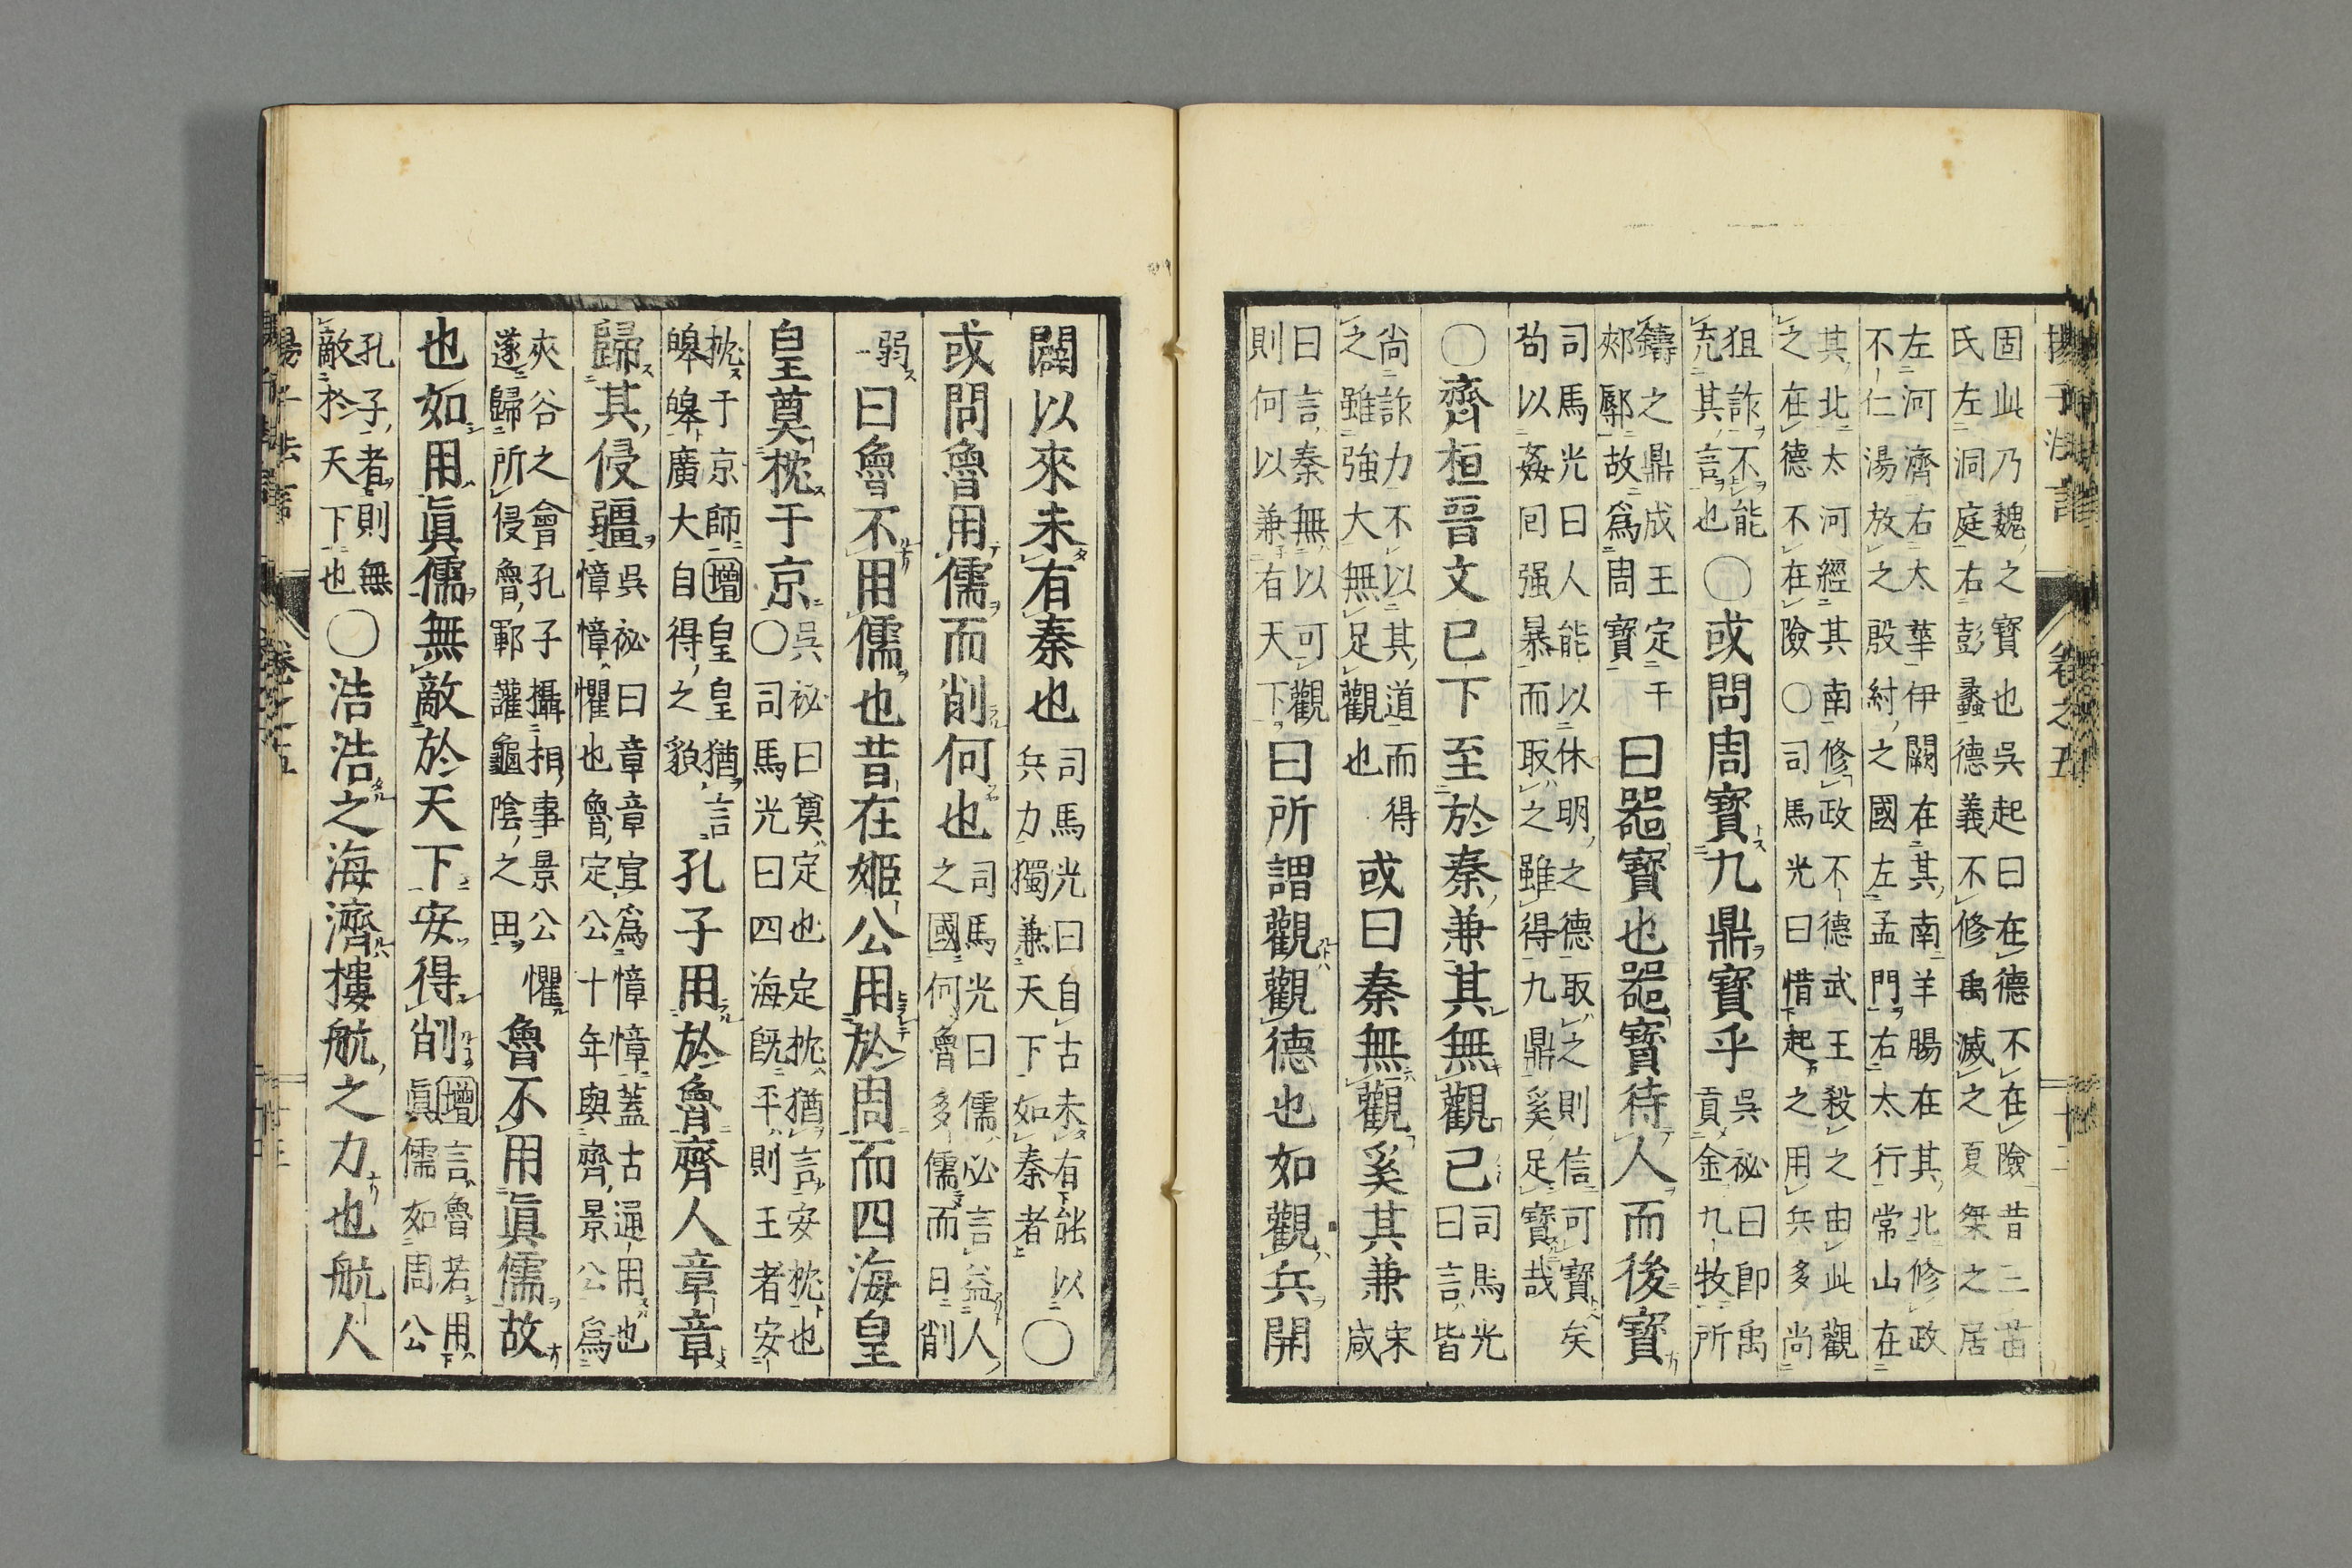 揚子法言 卷之五 十二
固此乃魏之寳也吳起曰在德不在險昔三苗
氏左洞庭右彭蠡德義不修禹滅之夏桀之居
左河濟右太華伊闕在其南羊腸在其北修政
不仁湯放之殷紂之國左孟門右太行常山在
其北太河經其南修政不德武王殺之由此觀
之在德不在險○司馬光曰惜起之用兵多尚
狙詐不能
充其言也
○或問周寳九鼎寳乎
吳祕曰即禹
貢金九牧所
鑄之鼎成王定于
郟鄏故爲周寳
曰噐寳也噐寳待人而後寳
司馬光曰人能以休明之德取之則信可寳矣
茍以姦囘强暴而取之雖得九鼎奚足寳哉
○齊桓晉文已下至於秦兼其無觀已
司馬光
曰言皆
尚詐力不以其道而得
之雖強大無足觀也
或曰秦無觀奚其兼
宋
咸
曰言秦無以可觀
則何以兼有天下
曰所謂觀觀德也如觀兵開
闢以來未有秦也
司馬光曰自古未有能以
兵力獨兼天下如秦者
○
或問魯用儒而削何也
司馬光曰儒必言益人
之國何魯多儒而日削
弱
曰魯不用儒也昔在姬公用於周而四海皇
皇奠枕于京
吳祕曰奠定也定枕猶言安枕也
○司馬光曰四海旣平則王者安
枕于京師增皇皇猶言
皞皞廣大自得之貌
孔子用於魯齊人章章
歸其侵疆
吳祕曰章章宜爲慞慞蓋古通用也
慞慞懼也魯定公十年與齊景公爲
夾谷之會孔子攝相事景公懼
遂歸所侵魯鄆讙龜陰之田
魯不用眞儒故
也如用眞儒無敵於天下安得削
增言魯若用
眞儒如周公
孔子者則無
敵於天下也
○浩浩之海濟樓航之力也航人